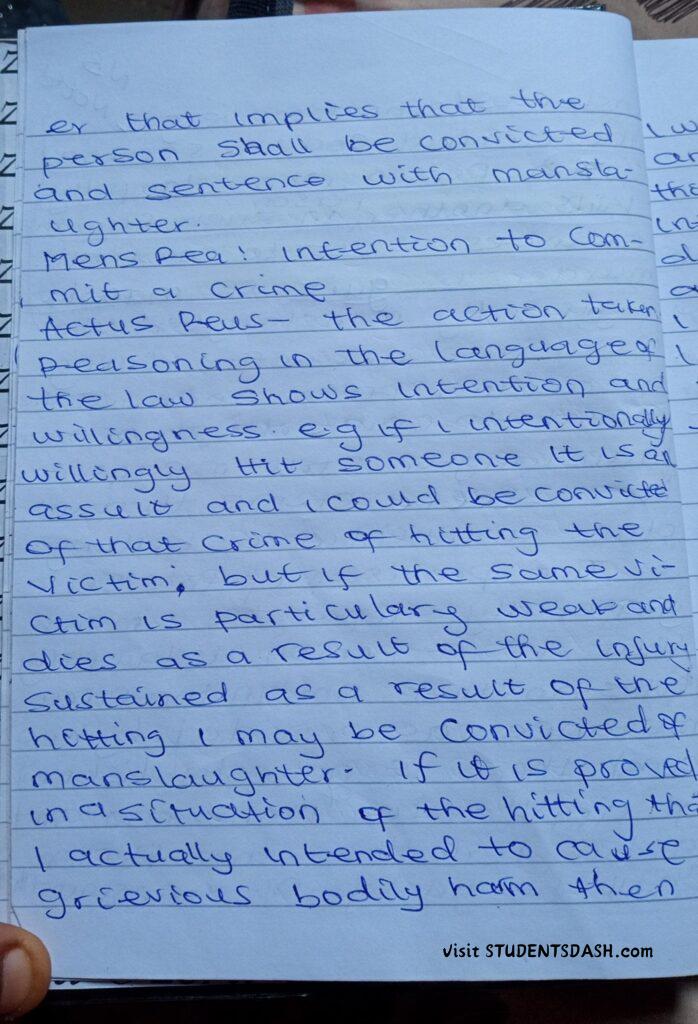 er that implies that the
person shall be convicted
and sentence with mansla-
ughter.
Mens Rea: intention to com-
mit a crime
Actus Reus- the action taken
Reasoning in the language of
the law shows intention and
willingness. e.g if i intentionally
willingly Hit someone it is an
assult and i could be convicted
of that crime of hitting the
victim, but if the same vi-
ctim is particulary weak and
dies as a result of the injury
sustained as a result of the
hitting i may be convicted of
manslaughter. if it is proved
in a situation of the hitting tha
I actually intended to cause
grievious bodily harm then
visit STUDENTSDASH.com